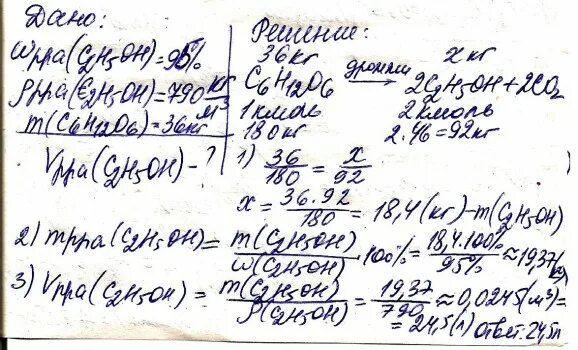 Дано:
Wрра(C2H5OH)=95%
ρрра(C2H5OH)=790 кг/м3
m(C6H12O6)=36кг
Vрра(C2H5OH)-?
Решение:
36кг xкг
C6H12O6 дрожжи→ 2C2H5OH+2CO2
1кмоль 2кмоль
180кг 2.46=92кг
1) 36/180 = x/92
x = 36.92/180 = 18,4(кг)-m(C2H5OH)
2) mрра(C2H5OH)= m(C2H5OH)/ω(C2H5OH) 100%= 18,4.100%/95% ≈19,37(кг)
3) Vрра(C2H5OH) = m(C2H5OH)/ρ(C2H5OH) = 19,37/790 ≈0,0245(м3)=
=24,5(л) Ответ: 24,5л